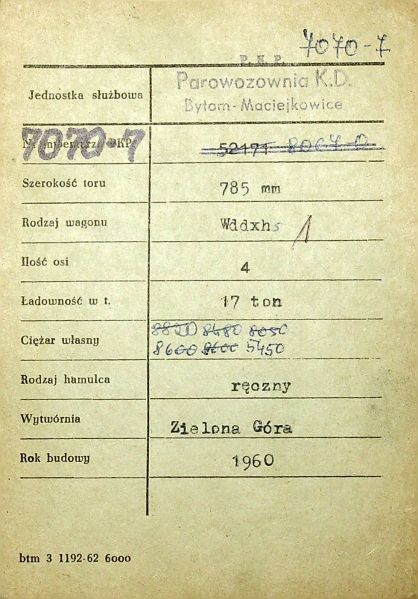 7070-7
P. K. P.
Parowozownia K.D.
Jednostka służbowa
Bytom-Maciejkowice
7070-7
PKP
52171
Szerokość toru 785 mm
Rodzaj wagonu Wddxhs 1
Ilość osi 4
Ładowność w t. 17 ton
8480 8050
Ciężar własny
8600 8600 5450
Rodzaj hamulca ręczny
Wytwórnia Zielona Góra
Rok budowy 1960
btm 3 1192-62 6000